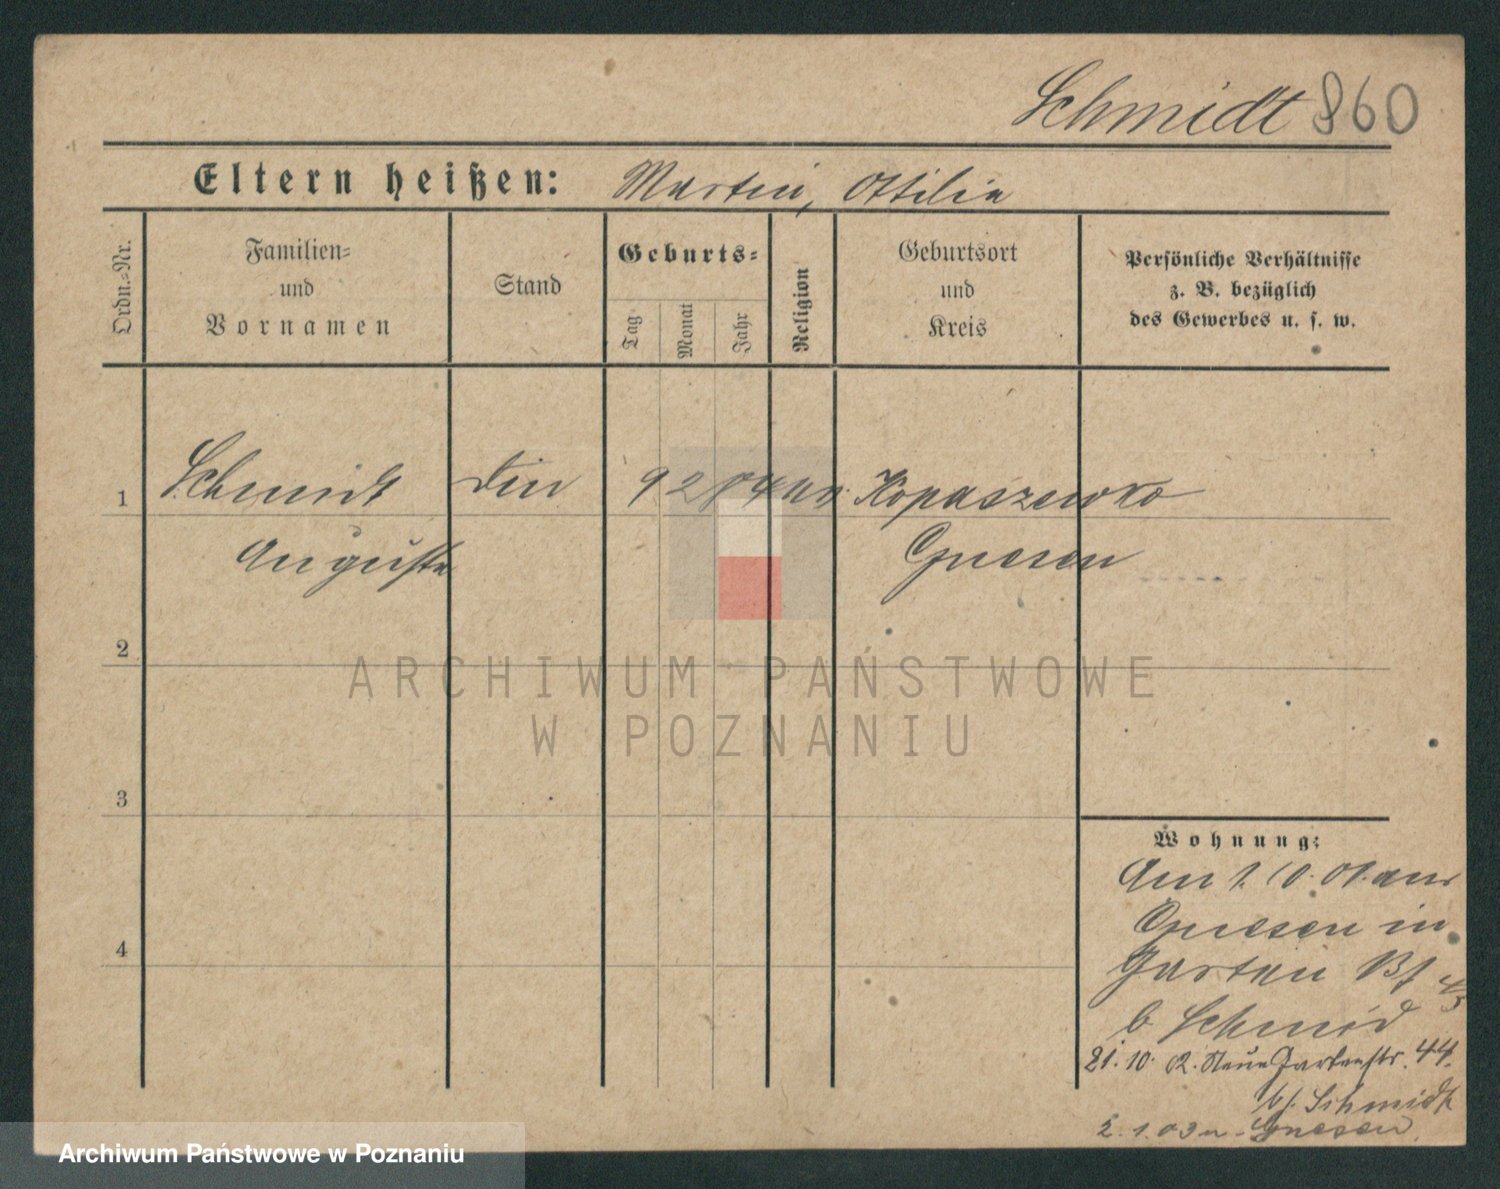 Schmidt 860
Eltern heißen: Martin, Ottilie
Ordn.-Nr.
Familien-
und
Vornamen
Stand
Geburts-
Tag
Monat
Jahr
Religion
Geburtsort
und
Kreis
Persönliche Verhältnisse
z. B. bezüglich
des Gewerbes u. s. w.
1 Schmidt 9 2 84 Kopaszewko
Auguste Gnesen
2
ARCHIWUM PAŃSTWOWE
W POZNANIU
3
Wohnung:
Am 1. 10. 01. aus
Gnesen in
4
b. Schmid
21. 10. 02. Neue Gartenstr. 44.
b/. Schmidt
2. 1. 03 n. Gnesen
Archiwum Państwowe w Poznaniu